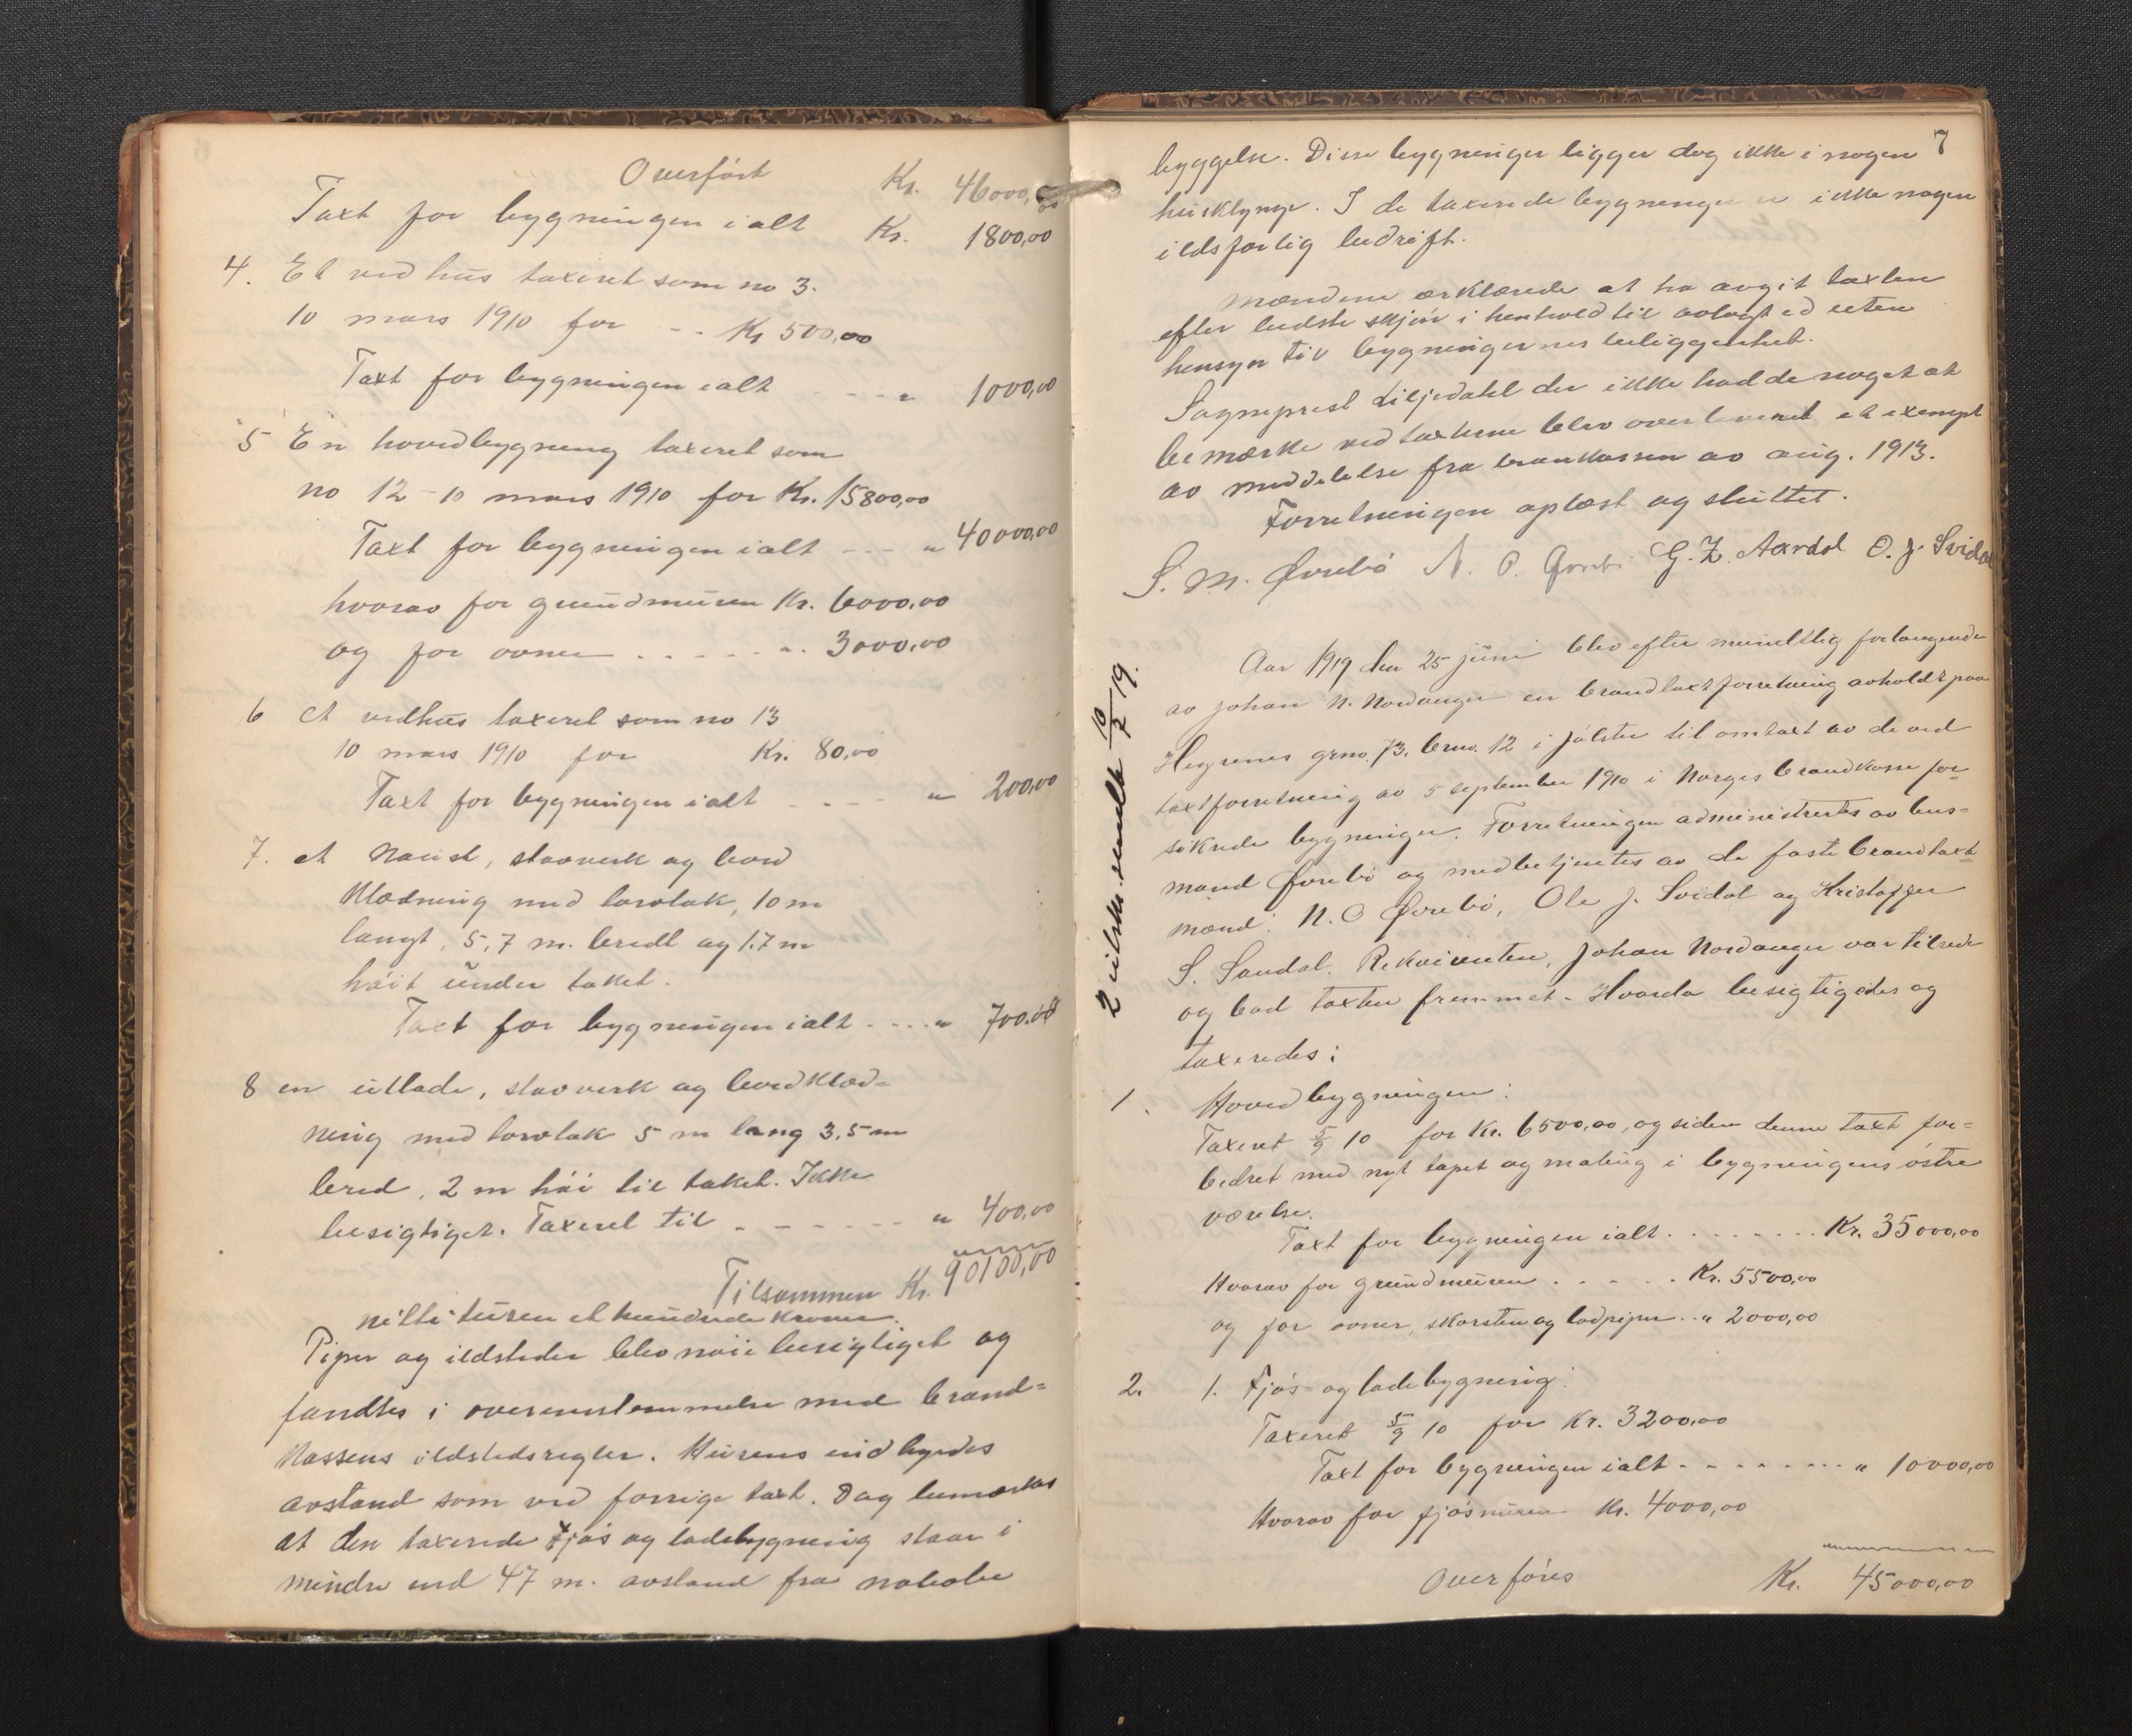 Overført Kr. 46000,00
Taxt for bygningen ialt Kr. 1800,00
4. Et vedhus taxeret som no 3.
10 mars 1910 for - - Kr 500,00
Taxt for bygningen ialt - - - " 1000,00
5 En hovedbygning taxeret som
no 12 - 10 mars 1910 for Kr. 15800,00
Taxt for bygningen ialt - - - " 40000,00
hvorav for grundmuren Kr. 6000,00
og for ovner . . . . . ". 3000,00
6 et vedhus taxeret som no 13
10 mars 1910 for Kr. 80,00
Taxt for bygningen ialt - - - " 200,00
7. et Naust, stavverk og bord
klædning med torvtak, 10 m
langt, 5,7 m. bredt og 1.7 m
høit under taket.
Taxt for bygningen ialt . . . . " 700.00
8 en utlade, stavverk og bordklæd-
ning med torvtak 5 m lang 3,5 m
bred, 2 m høi til taket. Ikke
besigtiget. Taxeret til - - - - - - " 400,00
Tilsammen Kr. 90100,00
nitti tusen et hundrede kroner.
Piper og ildsteder blev nøie besigtiget og
fandtes i overensstemmelse med brand-
kassens ildstedsregler. Husens indbyrdes
avstand som ved forrige taxt. Dog bemerkes
at den taxerede fjøs og ladebygning staar i
mindre end 47 m. avstand fra nabobe
7
byggelse. Disse bygninger ligger dog ikke i nogen
husklynge. I de taxerede bygninger er ikke nogen
ildsfarlig bedrift.
Mændene erklærede at ha avgit taxten
efter bedste skjøn i henhold til avlagt ed uten
hensyn til bygningernes beliggenhet.
Sogneprest Liljedahl der ikke hadde noget at
bemærke ved taxterne blev overleveret et exempl
av meddelelse fra brankassen av aug. 1913.
Forretningen oplæst og sluttet.
S. M. Øvrebø N. O. Øvrebø G. Z. Aardal O. J. Svidal
2 utskr. sendt 10/7 19.
Aar 1919 den 25 juni blev efter mundtlig forlangende
av Johan N. Nordanger en brandtaxtforretning avholdt paa
Hegrenes grno. 73. brno. 12 i Jølster til omtaxt av de ved
taxtforretning av 5 september 1910 i Norges brandkasse for-
sikrede bygninger. Forretningen administrertes av lens-
mand Øvrebø og medbetjentes av de faste brandtaxt-
mænd: N. O Øvrebø, Ole J. Svidal og Kristoffer
S. Sandal. Rekvirenten, Johan Nordanger var tilstede
og bad taxten fremmet. Hvorda besigtigedes og
taxeredes:
1. Hovedbygningen:
Taxeret 5/9 10 for Kr. 6500,00, og siden denne taxt for-
bedret med nyt tapet og maling i bygningens østre
værelse.
Taxt for bygningen ialt . . . . . . . . Kr. 35000,00
Hvorav for grundmuren . . . . . Kr. 5500,00
og for ovner, skorsten og lodpiper . . " 2000,00
2. 1. Fjøs- og ladebygning:
Taxeret 5/9 10 for Kr. 3200,00
Taxt for bygningen ialt - - - - - - - " 10000,00
Hvorav for fjøsmuren Kr. 4000,00
Overføres Kr. 45000,00